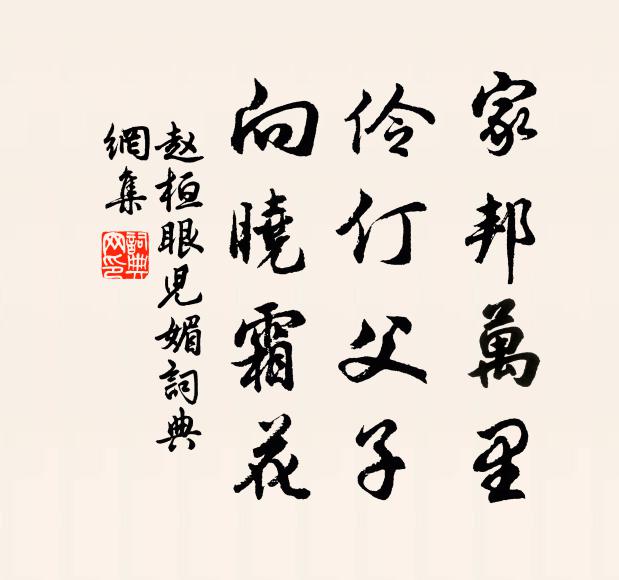 家邦萬里
伶仃父子
向曉霜花
赵桓眼児媚詞典
網集
詞典
网印